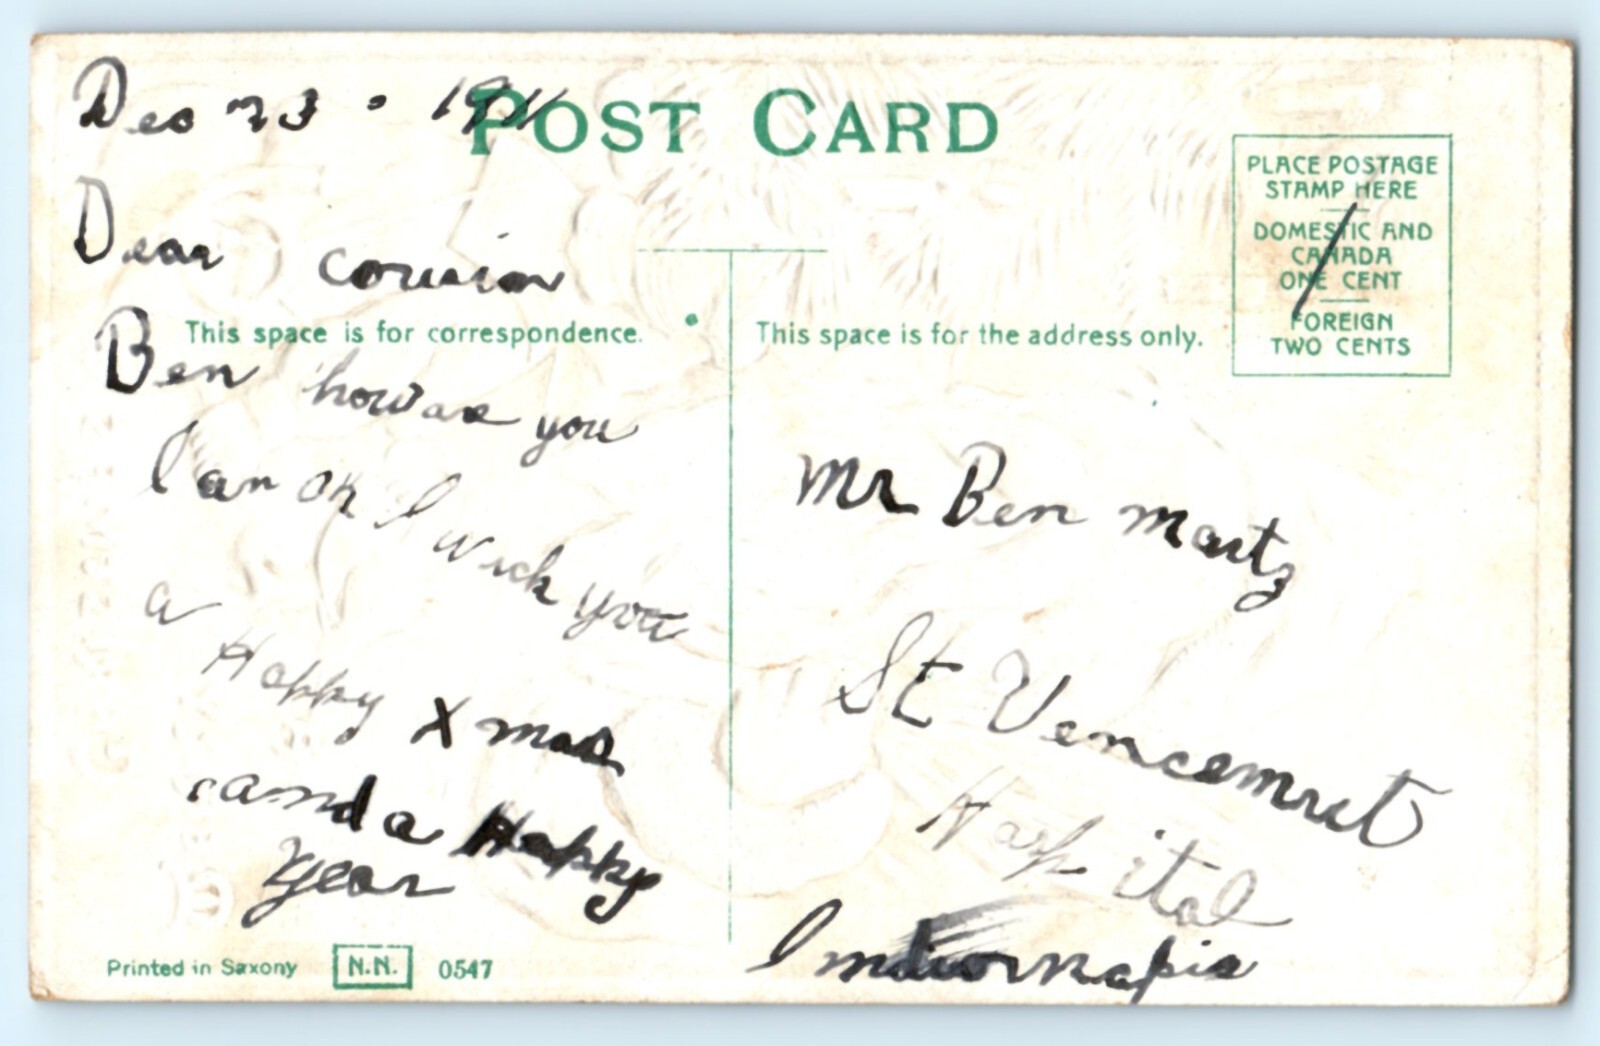 Dec 23 · 1911
POST CARD
PLACE POSTAGE
STAMP HERE
DOMESTIC AND
CANADA
ONE CENT
FOREIGN
TWO CENTS
Dear cousin
This space is for correspondence.
Ben how are you
I am OK I wich you
a
Happy Xmas
and a Happy
year
Printed in Saxony N.N. 0547
This space is for the address only.
Mr Ben Martz
St Vencemnt
Hospital
Indiornapis